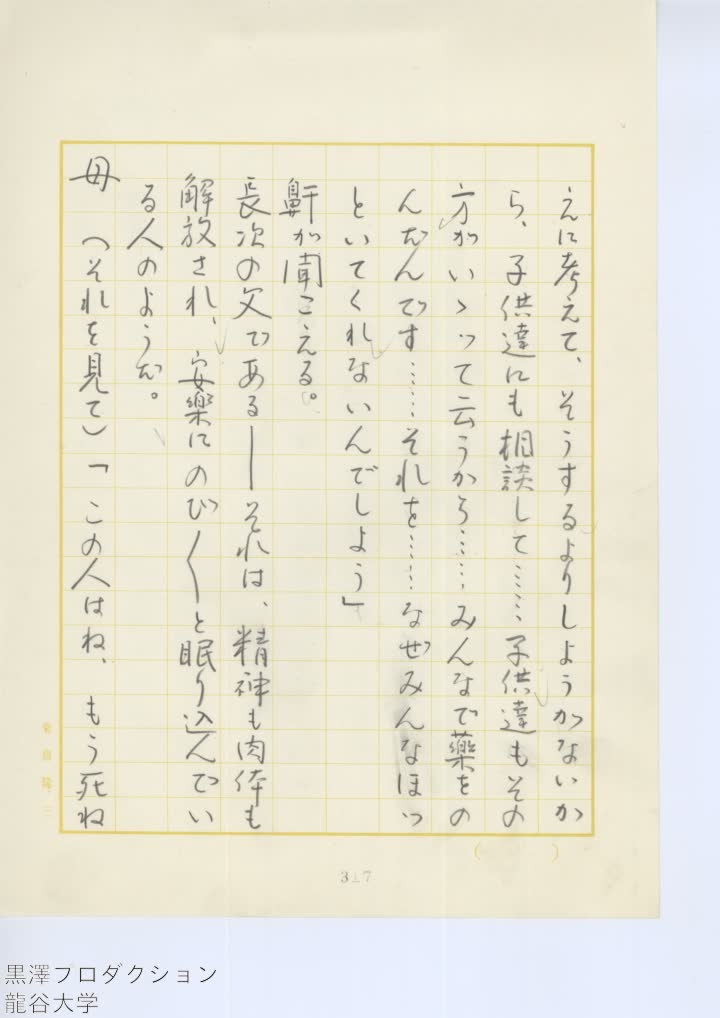 えに考えて、そうするよりしようがないか
ら、子供達にも相談して……子供達もその
方がいゝって云うから……みんなで薬をの
んだんです……それを……なぜみんなほっ
といてくれないんでしよう」
鼾が聞こえる。
長次の父である——それは、精神も肉体も
解放され、安楽にのび〱と眠り込んでい
る人のようだ。
母　（それを見て）「この人はね、もう死ね
317
黒澤プロダクション
龍谷大学